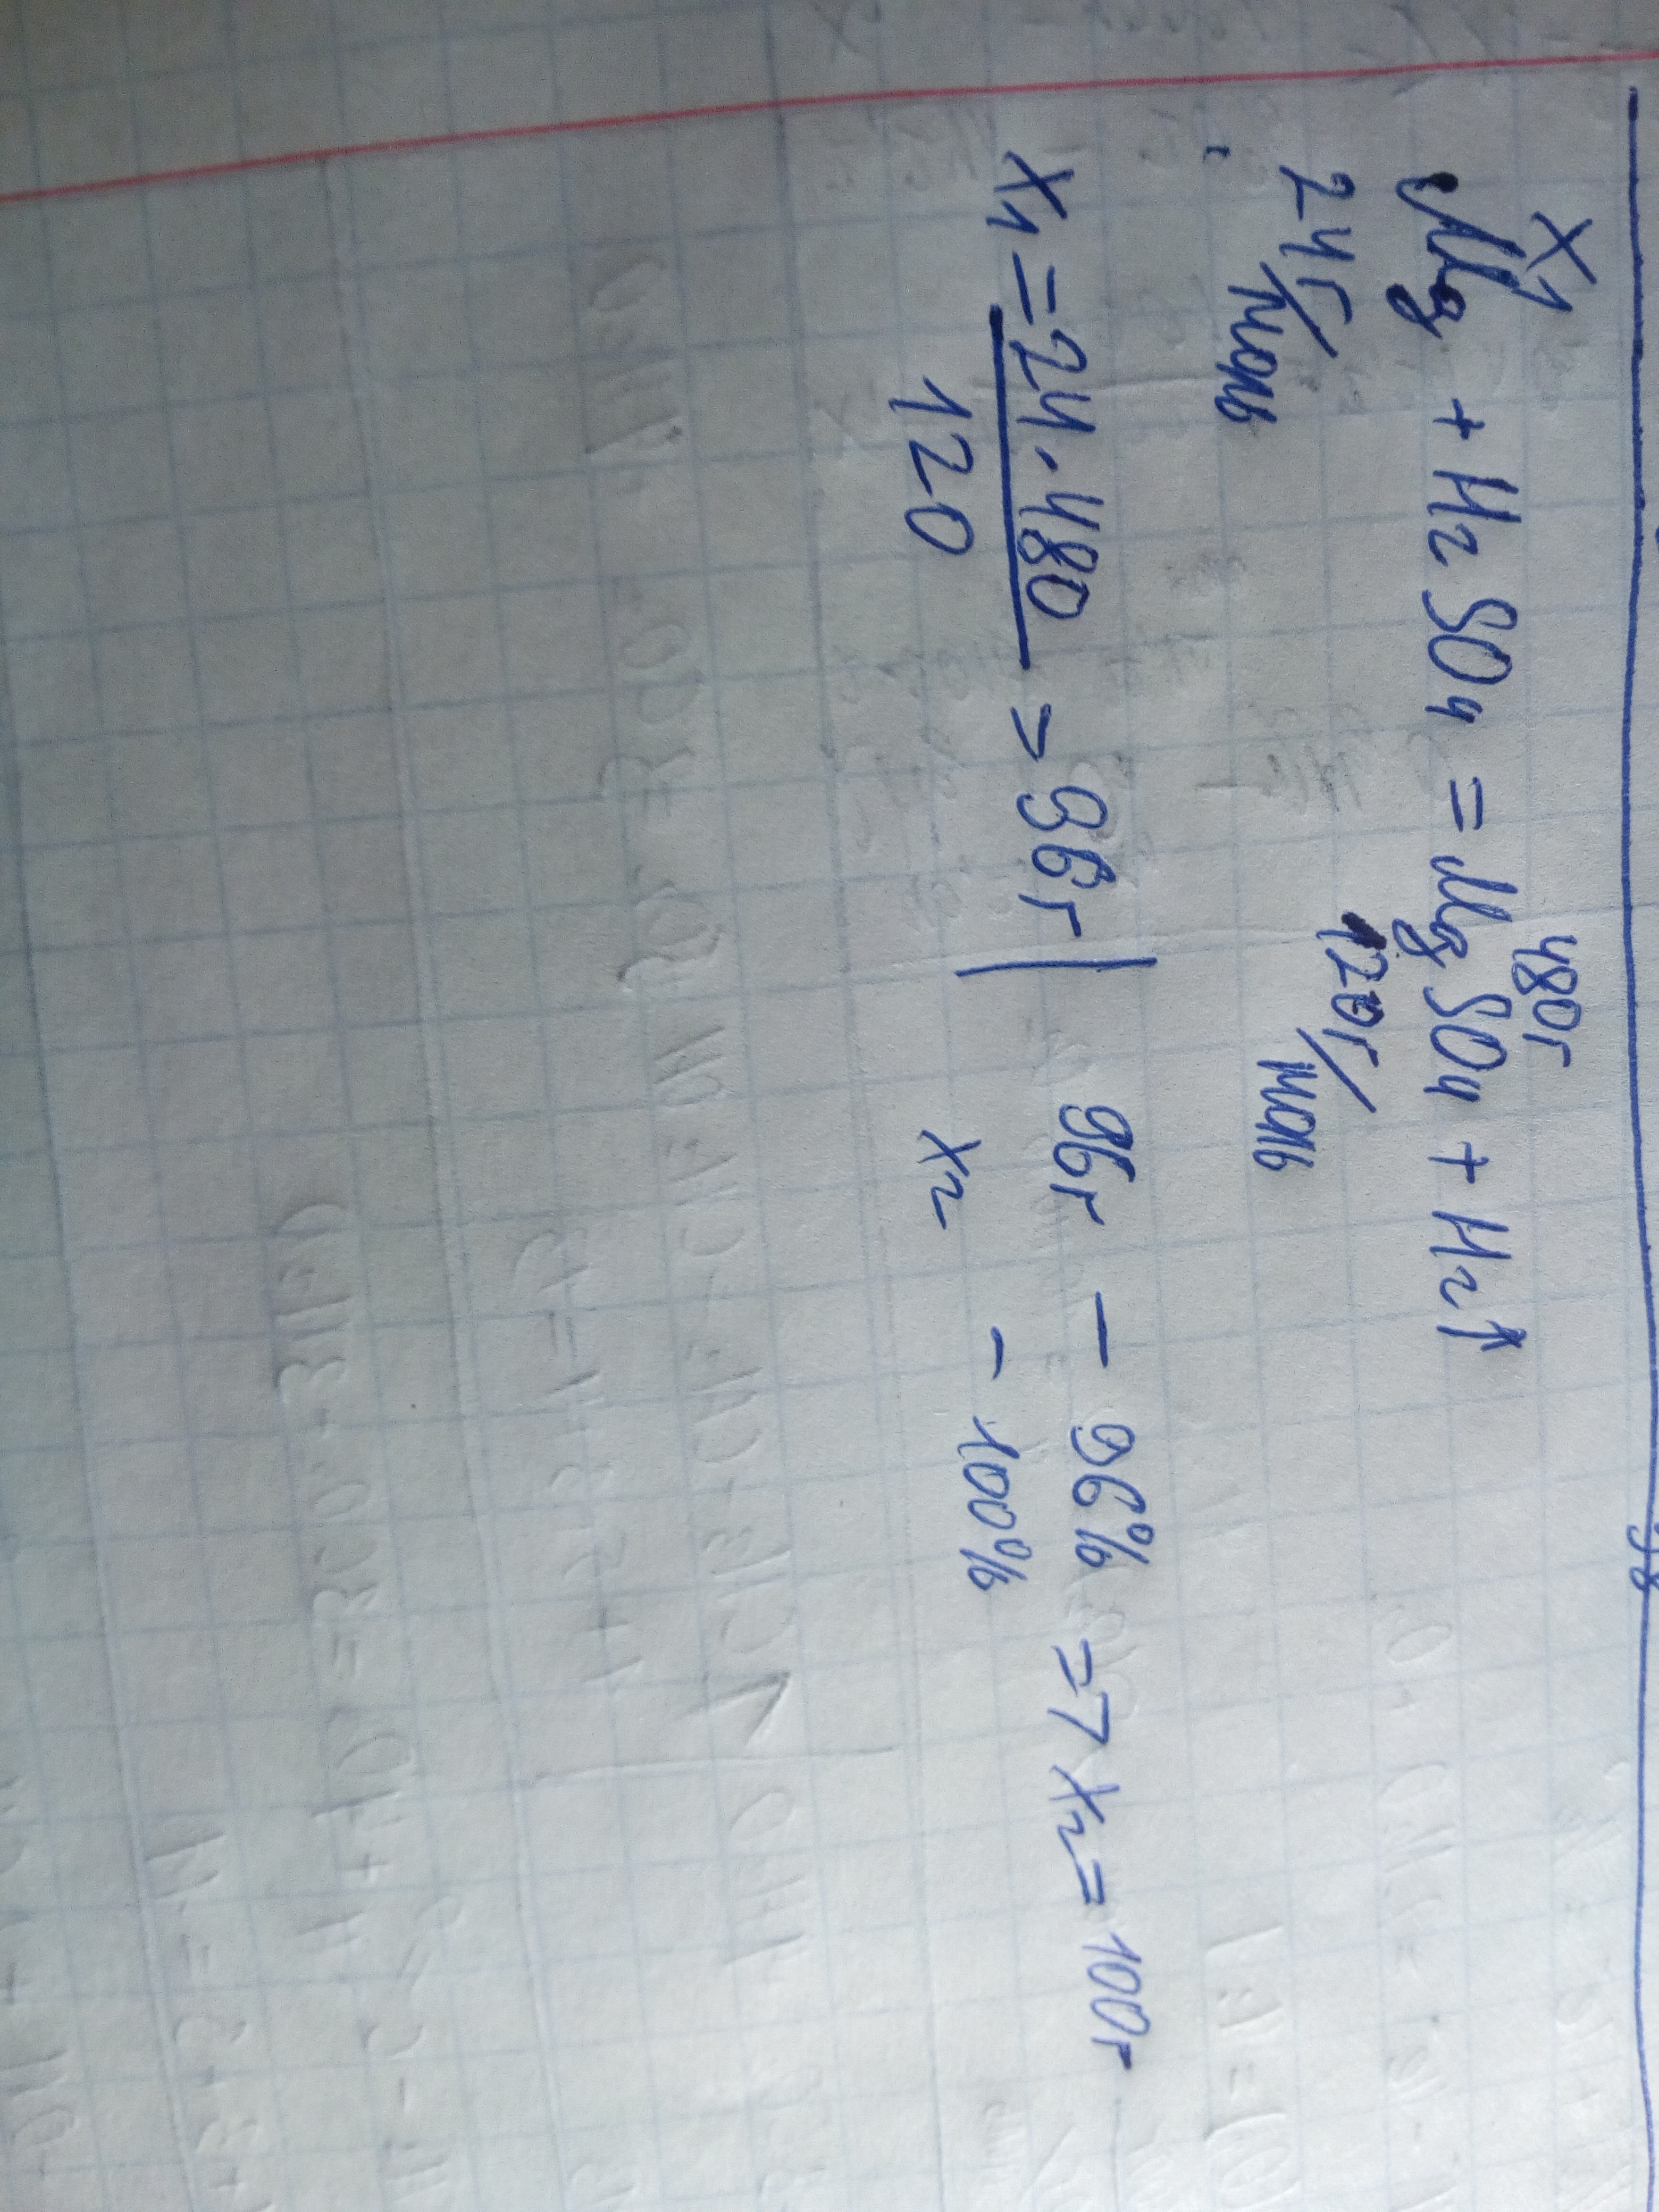 x1 480г
Mg + H2SO4 = MgSO4 + H2↑
24г/моль 120г/моль
x1 = 24·480 = 96г | 96г – 96% => x2 = 100г
120 x2 – 100%